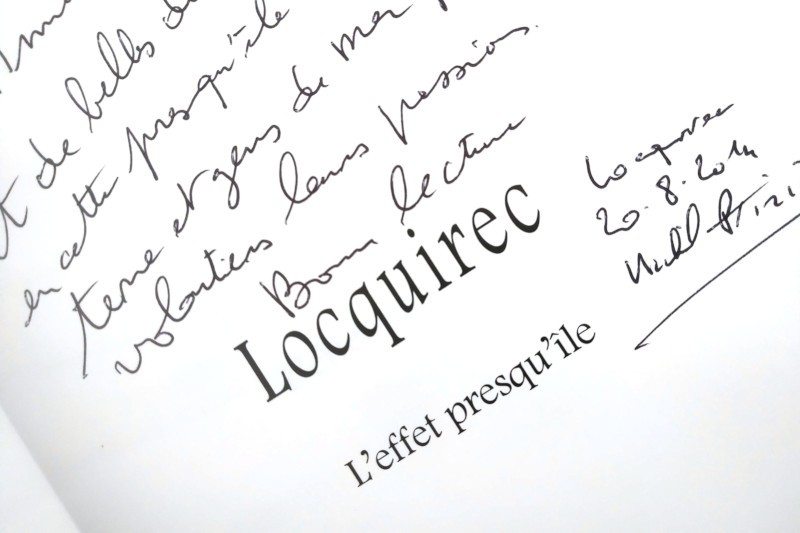 et de belles
en cette presqu'île
terre et gens de mer
volontiers leurs passions.
Bonne lecture
Locquirec
20.8.2014
Locquirec
L'effet presqu'île